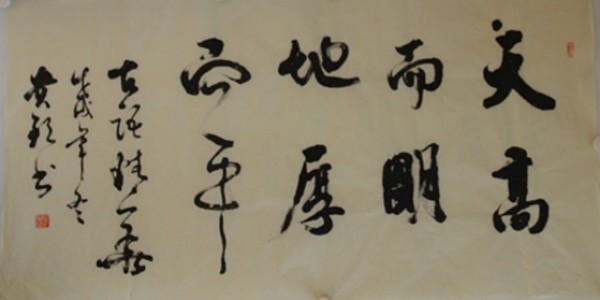 天高
而明
地厚
而平
古语
戊戌年冬
黄 书